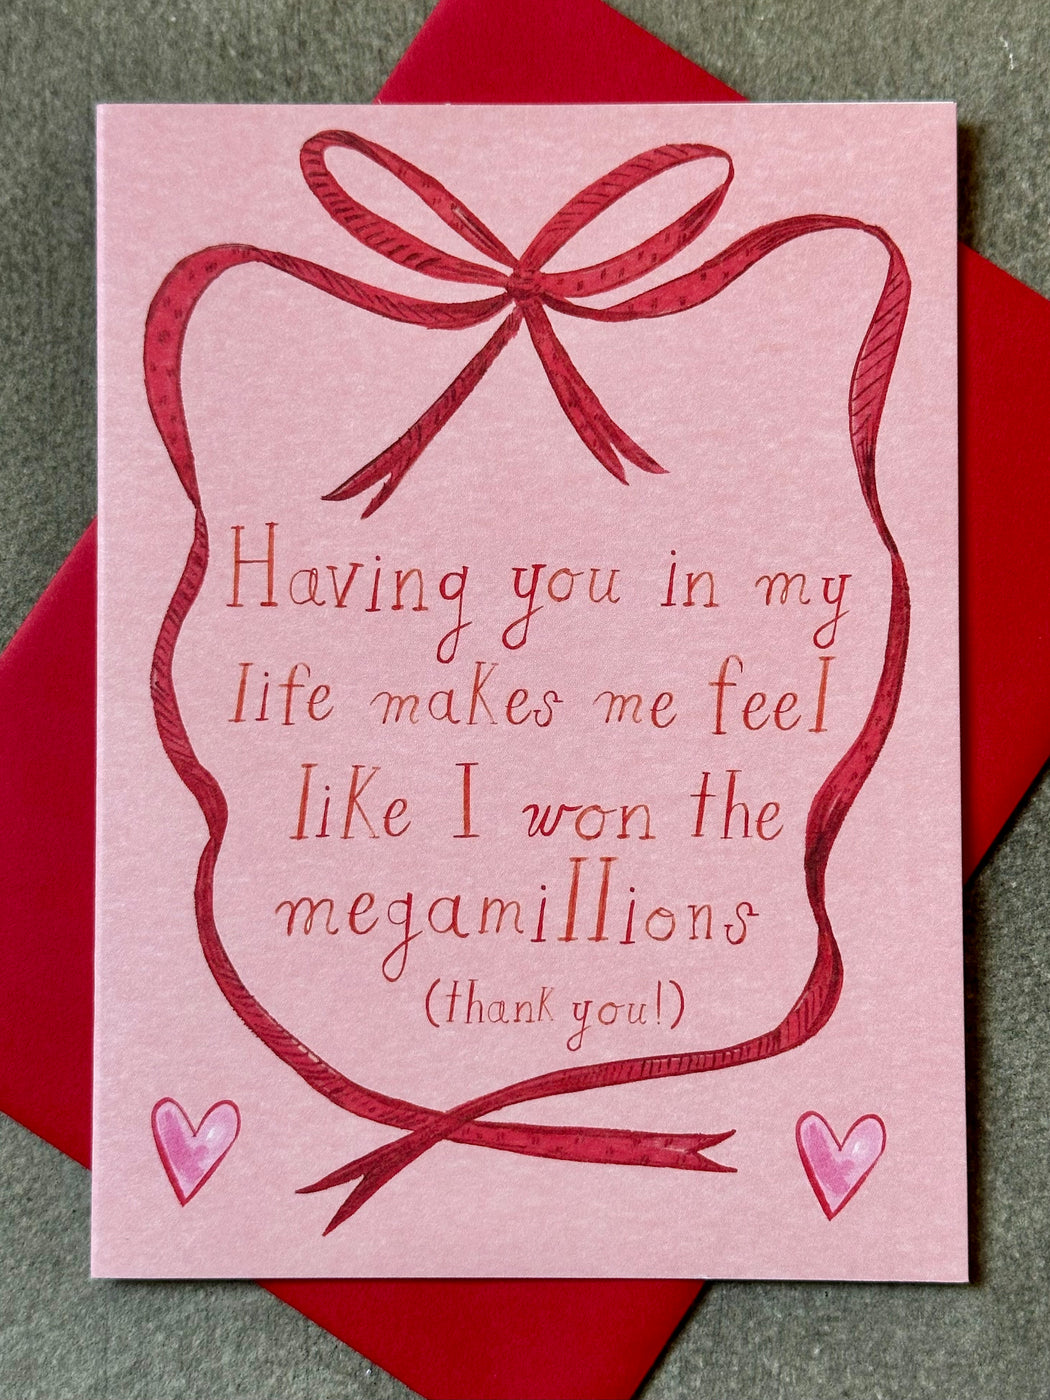 Having you in my
life makes me feel
like I won the
megamillions
(thank you!)